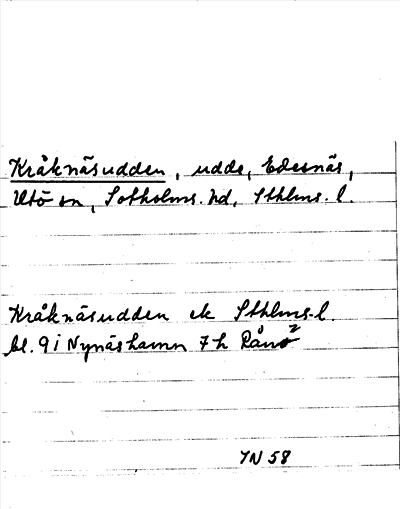 Kråknäsudden, udde, Edesnäs,
Utö sn, Sotholms. hd, Sthlms. l.
Kråknäsudden ek Sthlms-l.
bl. 9 i Nynäshamn 7h Rånö 2
YN 58